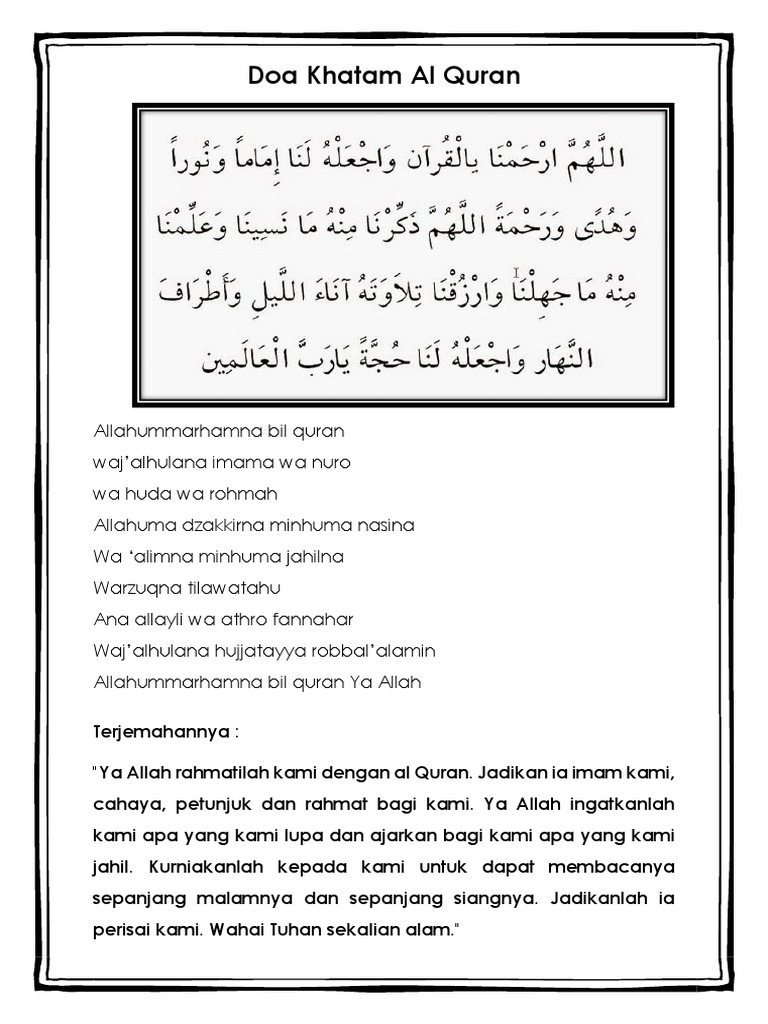 Doa Khatam Al Quran
اللَّهُمَّ ارْحَمْنَا بِالْقُرآن وَاجْعَلْهُ لَنَا إِمَاماً وَنُوراً
وَهُدًى وَرَحْمَةً اللَّهُمَّ ذَكِّرْنَا مِنْهُ مَا نَسِينَا وَعَلِّمْنَا
مِنْهُ مَا جَهِلْنَا وَارْزُقْنَا تِلاَوَتَهُ آنَاءَ اللَّيلِ وَأَطْرَافَ
النَّهَار وَاجْعَلْهُ لَنَا حُجَّةً يَارَبَّ الْعَالَمِين
Allahummarhamna bil quran
waj’alhulana imama wa nuro
wa huda wa rohmah
Allahuma dzakkirna minhuma nasina
Wa ‘alimna minhuma jahilna
Warzuqna tilawatahu
Ana allayli wa athro fannahar
Waj’alhulana hujjatayya robbal’alamin
Allahummarhamna bil quran Ya Allah
Terjemahannya :
"Ya Allah rahmatilah kami dengan al Quran. Jadikan ia imam kami,
cahaya, petunjuk dan rahmat bagi kami. Ya Allah ingatkanlah
kami apa yang kami lupa dan ajarkan bagi kami apa yang kami
jahil. Kurniakanlah kepada kami untuk dapat membacanya
sepanjang malamnya dan sepanjang siangnya. Jadikanlah ia
perisai kami. Wahai Tuhan sekalian alam."